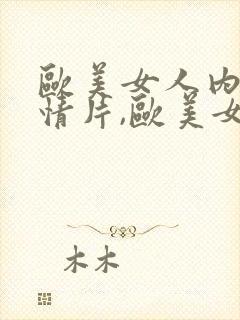 歐美女人內
情片,歐美女
木木